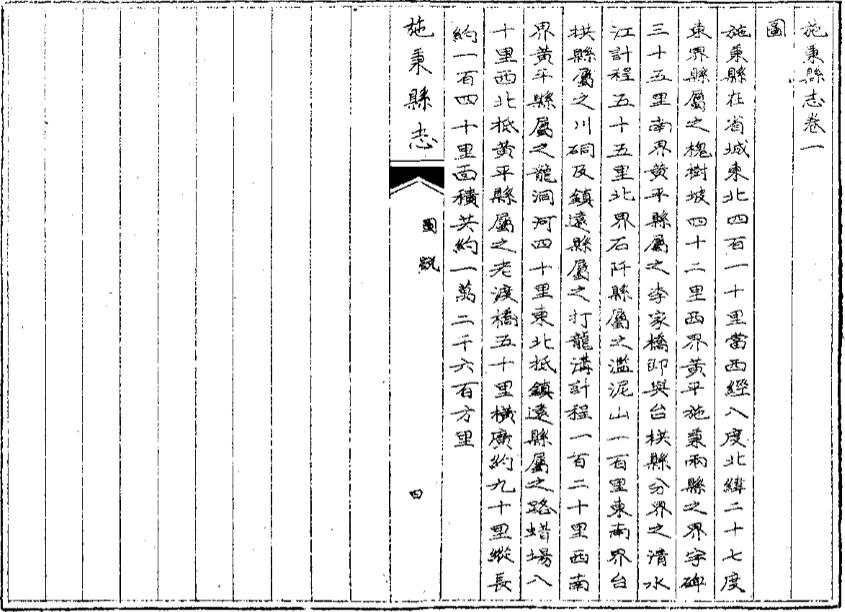 施秉縣志卷一
圖
施秉縣在省城東北四百一十里當西經八度北緯二十七度
東界縣屬之槐樹坡四十二里西界黃平施秉兩縣之界字碑
三十五里南界黃平縣屬之李家橋即與台拱縣分界之清水
江計程五十五里北界石阡縣屬之濫泥山一百里東南界台
拱縣屬之川硐及鎮遠縣屬之打龍溝計程一百二十里西南
界黃平縣屬之龍洞河四十里東北抵鎮遠縣屬之路蜡場八
十里西北抵黃平縣屬之老渡橋五十里橫廣約九十里縱長
約一百四十里面積共約一萬二千六百方里
施秉縣志
圖說
四